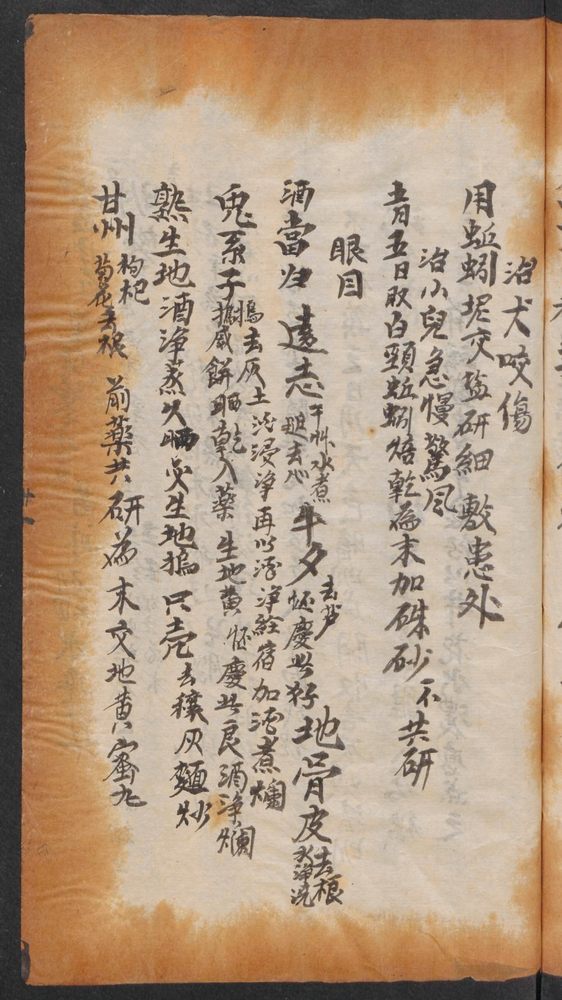 治犬咬傷
用蚯蚓坭交盐研細敷患外
治小兒急慢驚風
五日取白頸蚯蚓焙乾為末加硃砂不共研
眼目
酒當归 遠志 水煮去心 牛夕去芦懷慶 地骨皮去根水淨洗
兎系子 去灰土 酒浸净再以酒净經宿加酒煮爛 餅晒乹入藥 生地黄懷慶 良酒净爛
熟生地酒净蒸久晒 生地 只壳去穰灰麵炒
甘州枸杞 菊花去根 前藥共研為末交地黄蜜丸